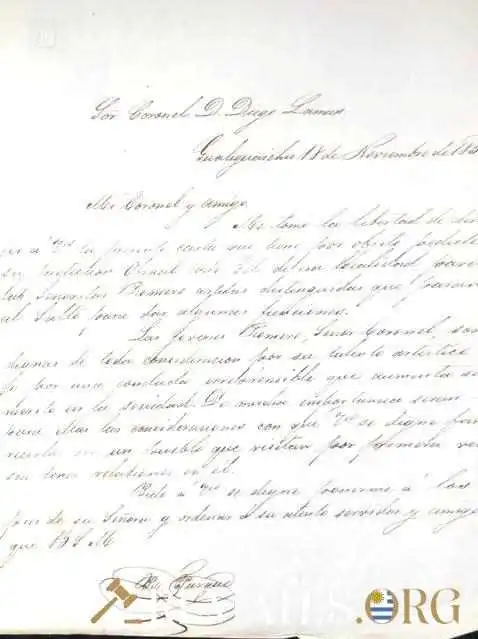 Sor Coronel D. Diego Lamas
Gualeguaychu 18 de Noviembre de 18
Mi Coronel y amigo
Me tomo la libertad de
a Vd la presente carta que tiene por objeto pedirle
su
las Señoritas Romero artistas distinguidas que
al Salto para dar algunas funciones.
Las jovenes Romero, Señor Coronel, son
dignas de toda consideracion por su talento artistico
y por una conducta irreprensible que aumenta su
merito en la sociedad. De mucha importancia seran
para ellas las consideraciones con que Vd se digne
en un pueblo que visitan por primera vez
sin tener relaciones en el.
Pido a Vd se digne ponerme a los
pies de su Señora y ordenar a su atento servidor y amigo
que B S M
S.ORG